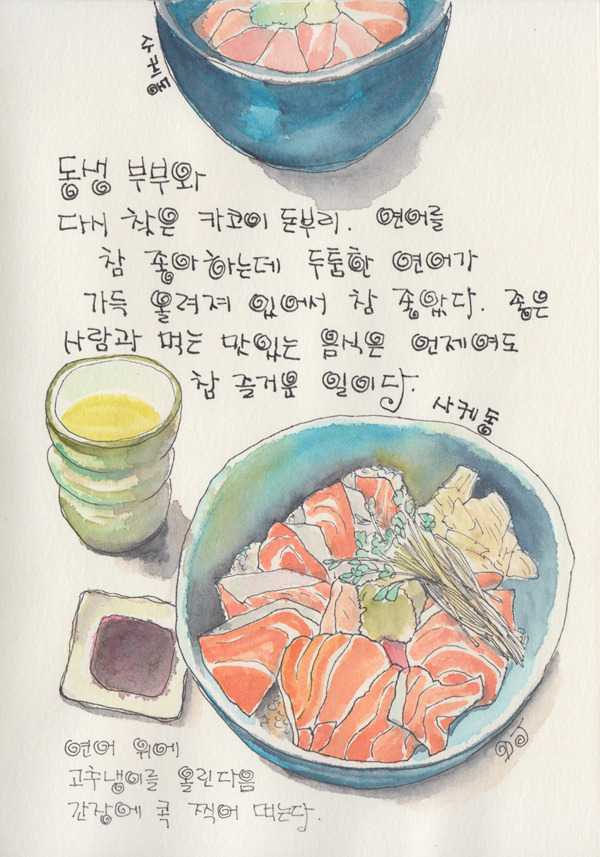 사케동
동생 부부와
다시 찾은 카코이 돈부리. 연어를
참 좋아하는데 두툼한 연어가
가득 올려져 있어서 참 좋았다. 좋은
사람과 먹는 맛있는 음식은 언제여도
참 즐거운 일이다.
사케동
연어 위에
고추냉이를 올린다음
간장에 콕 찍어 먹는다.